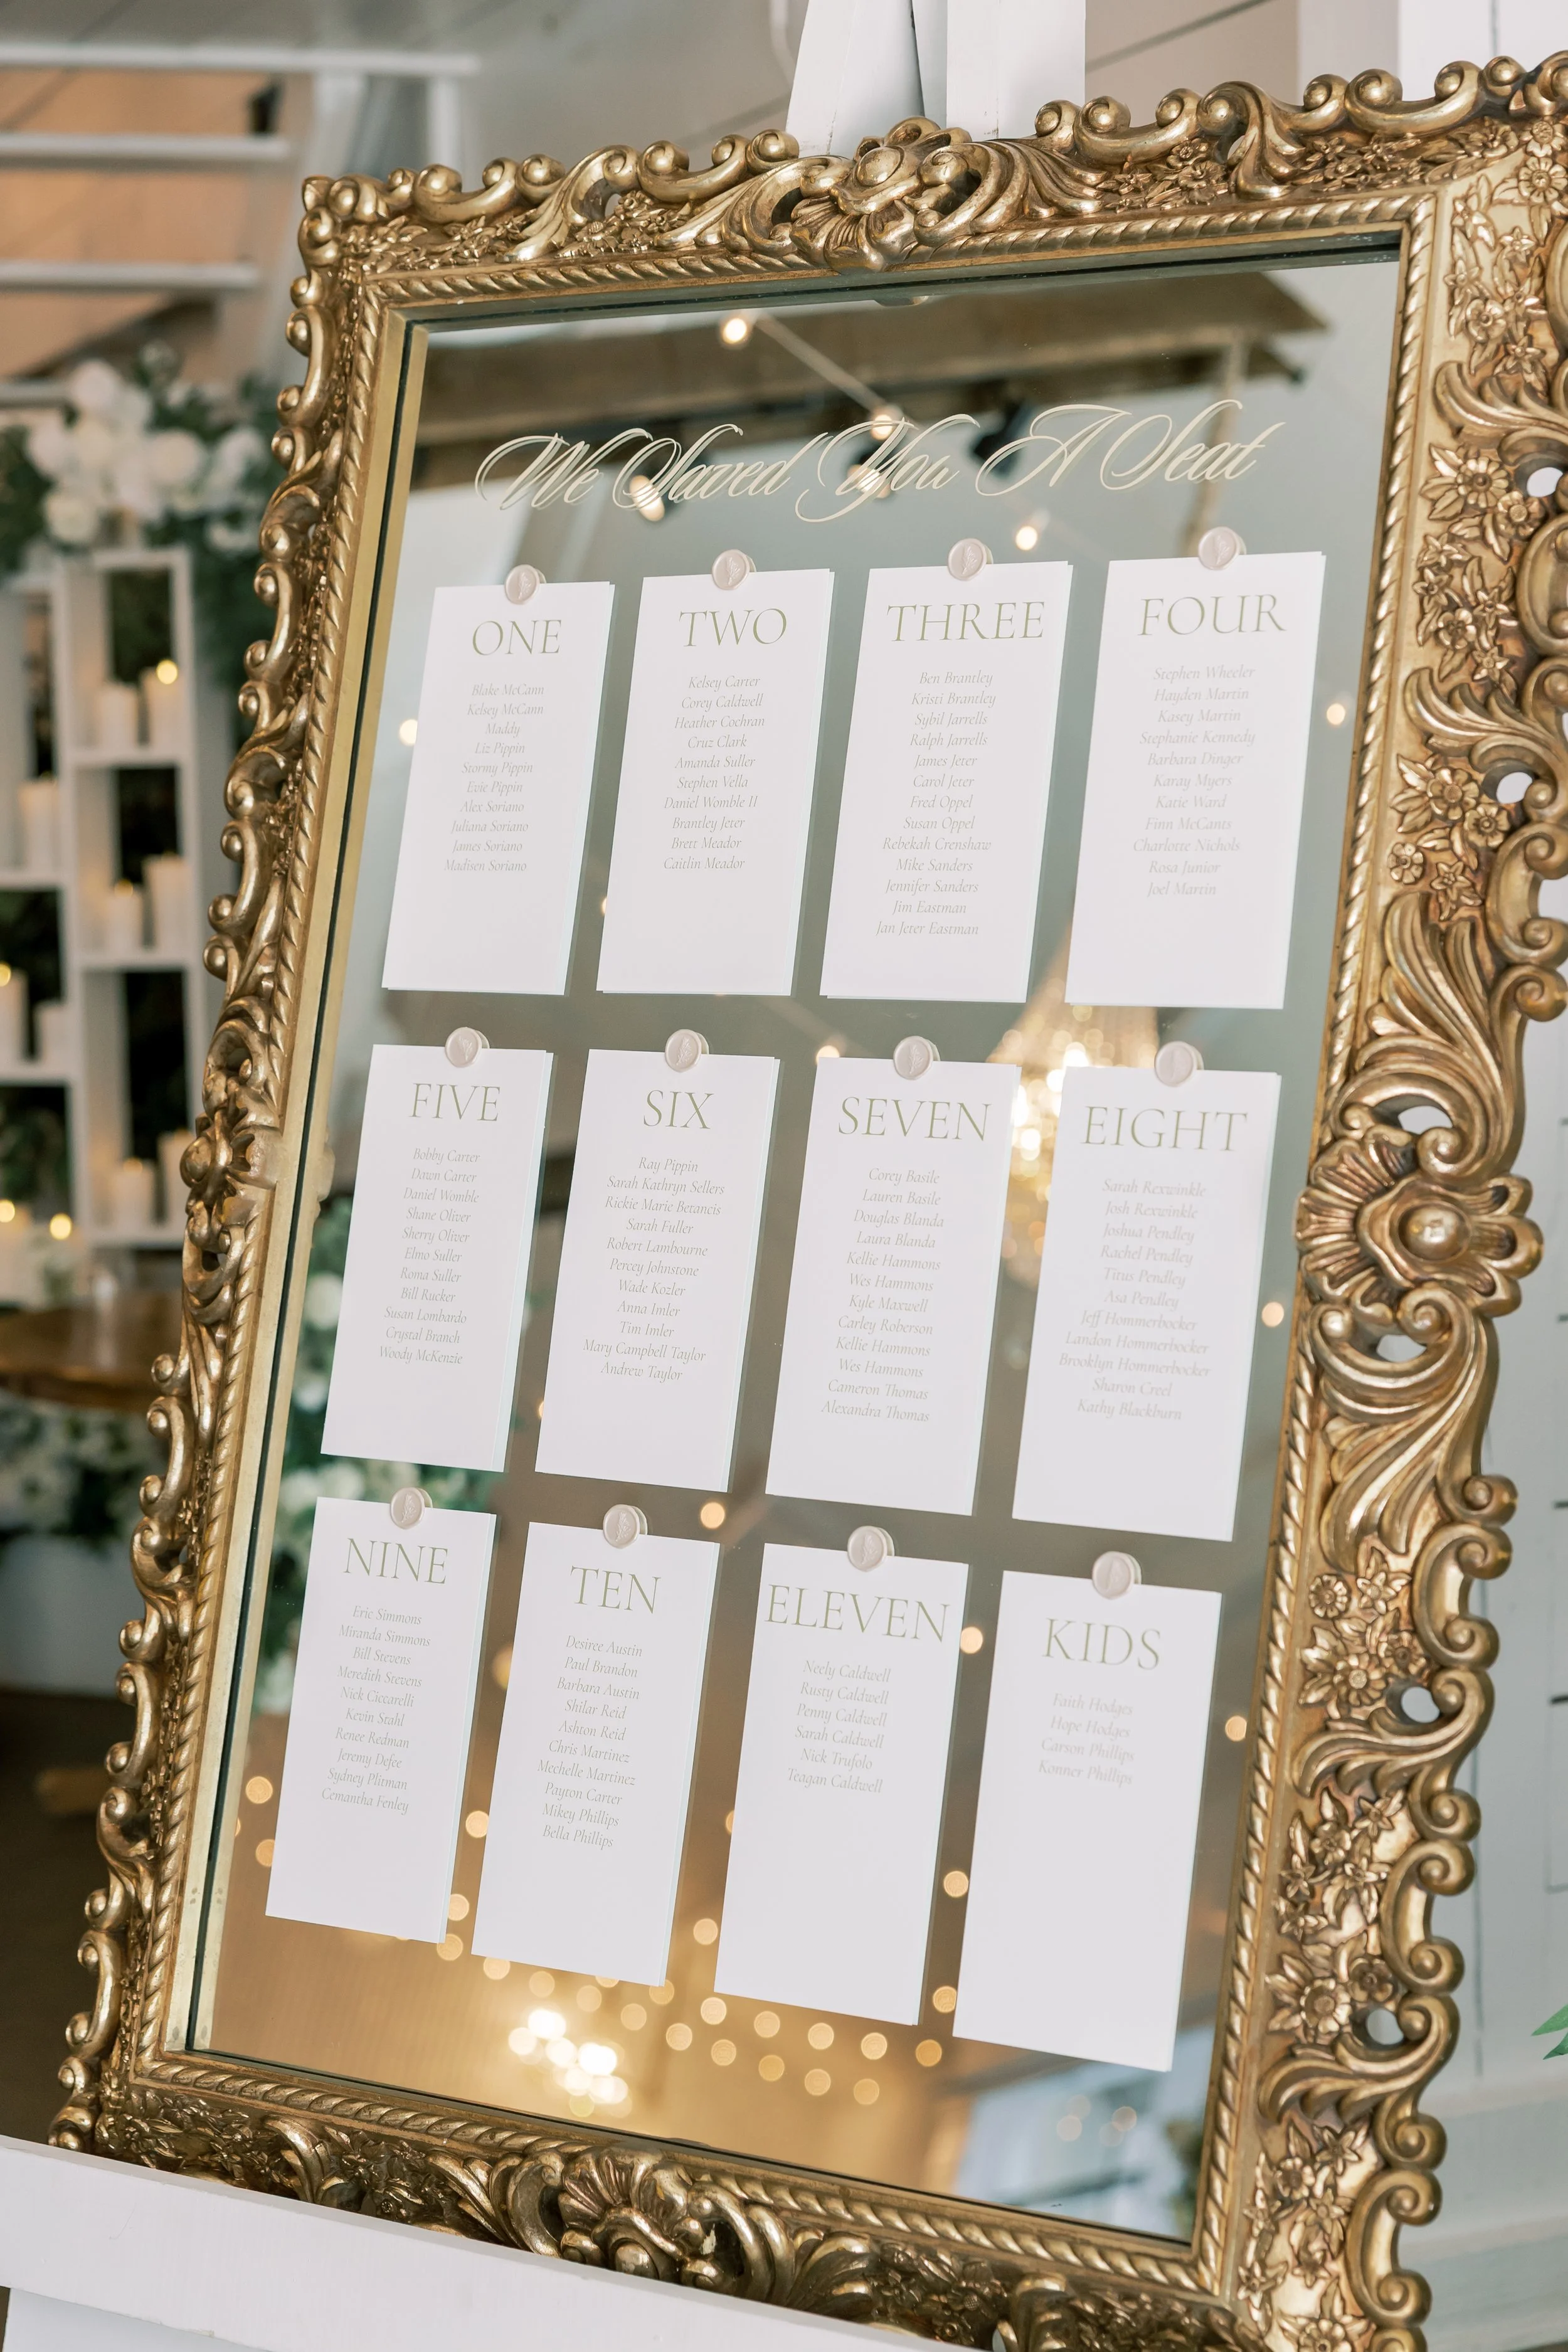 We Saved You A Seat
ONE
Blake McCann
Kelsey McCann
Maddy
Liz Pippin
Stormy Pippin
Evie Pippin
Alex Soriano
Juliana Soriano
James Soriano
Madisen Soriano
TWO
Kelsey Carter
Corey Caldwell
Heather Cochran
Cruz Clark
Amanda Suller
Stephen Vella
Daniel Womble II
Brantley Jeter
Brett Meador
Caitlin Meador
THREE
Ben Brantley
Kristi Brantley
Sybil Jarrells
Ralph Jarrells
James Jeter
Carol Jeter
Fred Oppel
Susan Oppel
Rebekah Crenshaw
Mike Sanders
Jennifer Sanders
Jim Eastman
Jan Jeter Eastman
FOUR
Stephen Wheeler
Hayden Martin
Kasey Martin
Stephanie Kennedy
Barbara Dinger
Karay Myers
Katie Ward
Finn McCants
Charlotte Nichols
Rosa Junior
Joel Martin
FIVE
Bobby Carter
Dawn Carter
Daniel Womble
Shane Oliver
Sherry Oliver
Elmo Suller
Roma Suller
Bill Rucker
Susan Lombardo
Crystal Branch
Woody McKenzie
SIX
Ray Pippin
Sarah Kathryn Sellers
Rickie Marie Betancis
Sarah Fuller
Robert Lambourne
Percey Johnstone
Wade Kozler
Anna Imler
Tim Imler
Mary Campbell Taylor
Andrew Taylor
SEVEN
Corey Basile
Lauren Basile
Douglas Blanda
Laura Blanda
Kellie Hammons
Wes Hammons
Kyle Maxwell
Carley Roberson
Kellie Hammons
Wes Hammons
Cameron Thomas
Alexandra Thomas
EIGHT
Sarah Rexwinkle
Josh Rexwinkle
Joshua Pendley
Rachel Pendley
Titus Pendley
Asa Pendley
Jeff Hommerbocker
Landon Hommerbocker
Brooklyn Hommerbocker
Sharon Creel
Kathy Blackburn
NINE
Eric Simmons
Miranda Simmons
Bill Stevens
Meredith Stevens
Nick Ciccarelli
Kevin Stahl
Renee Redman
Jeremy Defee
Sydney Plitman
Cemantha Fenley
TEN
Desiree Austin
Paul Brandon
Barbara Austin
Shilar Reid
Ashton Reid
Chris Martinez
Mechelle Martinez
Payton Carter
Mikey Phillips
Bella Phillips
ELEVEN
Neely Caldwell
Rusty Caldwell
Penny Caldwell
Sarah Caldwell
Nick Trufolo
Teagan Caldwell
KIDS
Faith Hodges
Hope Hodges
Carson Phillips
Konner Phillips